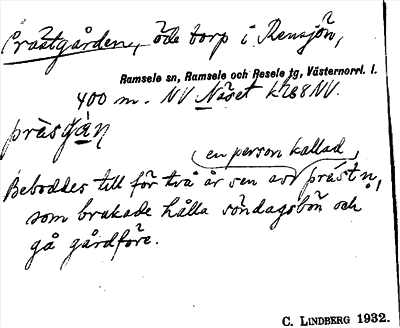 Prästgården, öde torp i Rensjön,
Ramsele sn, Ramsele och Resele tg, Västernorrl. l.
400 m. NV Näset k268NV.
präsgän
en person kallad
Beboddes till för två år sen av prästn,
som brukade hålla söndagsbön och
gå gårdföre.
C. LINDBERG 1932.